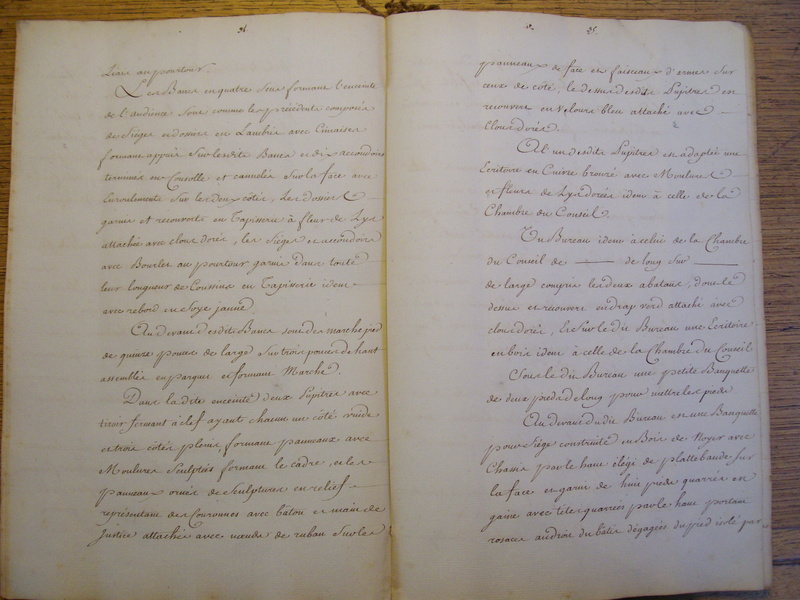 34.
Liais au pourtour.
Les Bancs en quatre sens formant l'enceinte
de l'audience sont comme les precedents composés
de Sieges en dossier en Lambris avec Cimaises
formant appuis sur lesdits Bancs et dix accoudoirs
terminés en Consolle et cannelés sur la face avec
Enroulements sur les deux côtés, les Dossiers
garnis et recouverts en Tapisserie à fleur de Lys
attachée avec clous dorés, les Sieges et accoudoirs
avec Bourlet au pourtour garni dans toute
leur longueur de Coussins en Tapisserie idem
avec rebord en Soye jaune
Au devant desdits Bancs sont des marchepied
de quinze pouces de large sur trois pouces de haut
assemblés en parquet et formant Marche.
Dans ladite enceinte deux Pupitres avec
tiroir fermant à clef ayant chacun un côté vuide
et trois côtés pleins, formant panneaux avec
Moulures Sculptés formant le cadre, et les
panneaux ornés de Sculptures en relief
représentant des Couronnes avec bâton et main de
Justice attachés avec nœuds de ruban sur les
35.
panneaux de face et faisceaux d'armes sur
ceux de côté, le dessus desdits Pupitres est
recouvert en Velours bleu attaché avec
Clous dorés.
A l'un desdits Pupitres est adapté une
Ecritoire en Cuivre bronzé avec Moulures
et fleurs de Lys dorées idem à celle de la
Chambre du Conseil.
Un Bureau idem à celui de la Chambre
du Conseil de ——— de long sur ———
de large compris les deux abatans, dont le
dessus est recouvert en drap verd attaché avec
clous dorés, Et sur le dit Bureau une Ecritoire
en bois idem à celle de la Chambre du Conseil
Sous le dit Bureau une petite Banquette
de deux pieds de long pour mettre les pieds
Au devant dudit Bureau est une Banquette
pour Siège construite en Bois de Noyer avec
Chassis par le haut élégi de plattebande sur
la face et garni de huit pieds quarrés en
gaine avec têtes quarrées par le haut portant
rosaces au droit du bâtis dégagés du pied isolé par